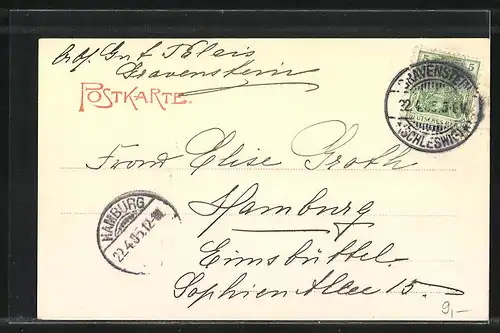 Gravenstein
POSTKARTE.
5
GRAVENSTEIN
22.4.05.
(SCHLESWIG)
Elise Groth
Hamburg
Eimsbüttel.
Sophien Allee 15.
HAMBURG
22.4.05.12-
9,-